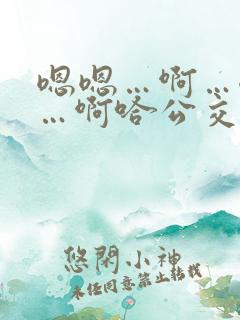 嗯嗯…啊…
…啊嗒公交
悠閑小神
未经同意禁止转载